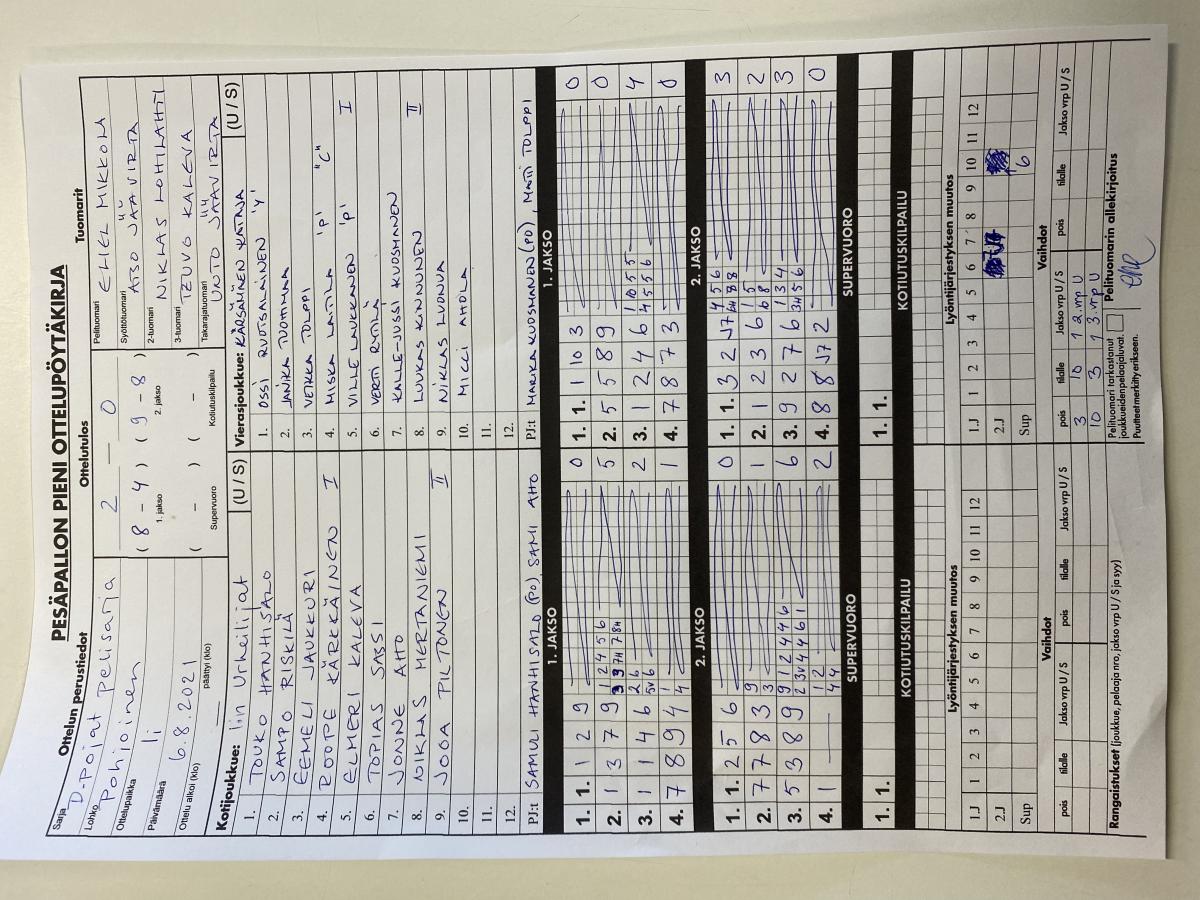 PESÄPALLON PIENI OTTELUPÖYTÄKIRJA
Ottelun perustiedot
Ottelutulos
Tuomarit
Sarja D-Pojat Pelisarja
Lohko Pohjoinen
Ottelupaikka Ii
Päivämäärä 6.8.2021
Ottelu alkoi (klo) päättyi (klo)
2 — 0
( 8 - 4 ) ( 9 - 8 )
1. jakso 2. jakso
( - ) ( - )
Supervuoro Kotiutuskilpailu
Pelituomari ELIEL MIKKOLA
Syöttötuomari ATSO JÄÄVIRTA
2-tuomari NIKLAS LOHILAHTI
3-tuomari KALEVA
Takarajatuomari UNTO JÄÄVIRTA
Kotijoukkue: Iin Urheilijat (U / S)
1. TOUKO HANHISALO
2. SAMPO RISKILÄ
3. EEMELI JAUKKURI
4. ROOPE KÄRKKÄINEN I
5. ELMERI KALEVA
6. TOPIAS SASSI
7. JONNE AHO
8. NIKLAS MERTANIEMI
9. JOOA PILTONEN II
10.
11.
12.
PJ:t SAMULI HANHISALO (PO), SAMI AHO
Vierasjoukkue: KÄRSÄMÄEN KATAJA (U / S)
1. OSSI RUOTSALAINEN "Y"
2. JANIKA TUOMAALA
3. VEIKKA TOLPPI
4. MISKA LAITILA "P" "C"
5. VILLE LAUKKANEN "P" I
6. VERTI RYTILÄ
7. KALLE-JUSSI KUOSMANEN
8. LUUKAS KINNUNEN II
9. NIKLAS LUONUA
10. MICCI AHOLA
11.
12.
PJ:t MARIKA KUOSMANEN (PO), MATTI TOLPPI
1. JAKSO
1. 1. 1 2 9 0
2. 1 3 7 9 5
3. 1 1 4 6 2
4. 7 8 9 4 1
1. JAKSO
1. 1. 1 10 3 0
2. 5 5 8 9 0
3. 1 2 4 6 4
4. 7 8 7 3 0
2. JAKSO
1. 1. 2 5 6 0
2. 7 7 8 3 1
3. 5 3 8 9 6
4. 1 2
2. JAKSO
1. 1. 3 2 J7 3
2. 1 2 3 6 2
3. 9 2 7 6 3
4. 8 8 J7 2 0
SUPERVUORO
1. 1.
SUPERVUORO
1. 1.
KOTIUTUSKILPAILU
KOTIUTUSKILPAILU
Lyöntijärjestyksen muutos
1.J 1 2 3 4 5 6 7 8 9 10 11 12
2.J
Sup
Lyöntijärjestyksen muutos
1.J 1 2 3 4 5 6 7 8 9 10 11 12
2.J
Sup 6
Vaihdot
pois tilalle Jakso vrp U / S pois tilalle Jakso vrp U / S
Vaihdot
pois tilalle Jakso vrp U / S pois tilalle Jakso vrp U / S
3 10 1 2.vrp U
10 3 1 3.vrp U
Rangaistukset (joukkue, pelaaja nro, jakso vrp U / S ja syy)
Pelituomari tarkastanut
joukkueiden pelaajaluvat.
Puutteet merkitty erikseen.
Pelituomarin allekirjoitus